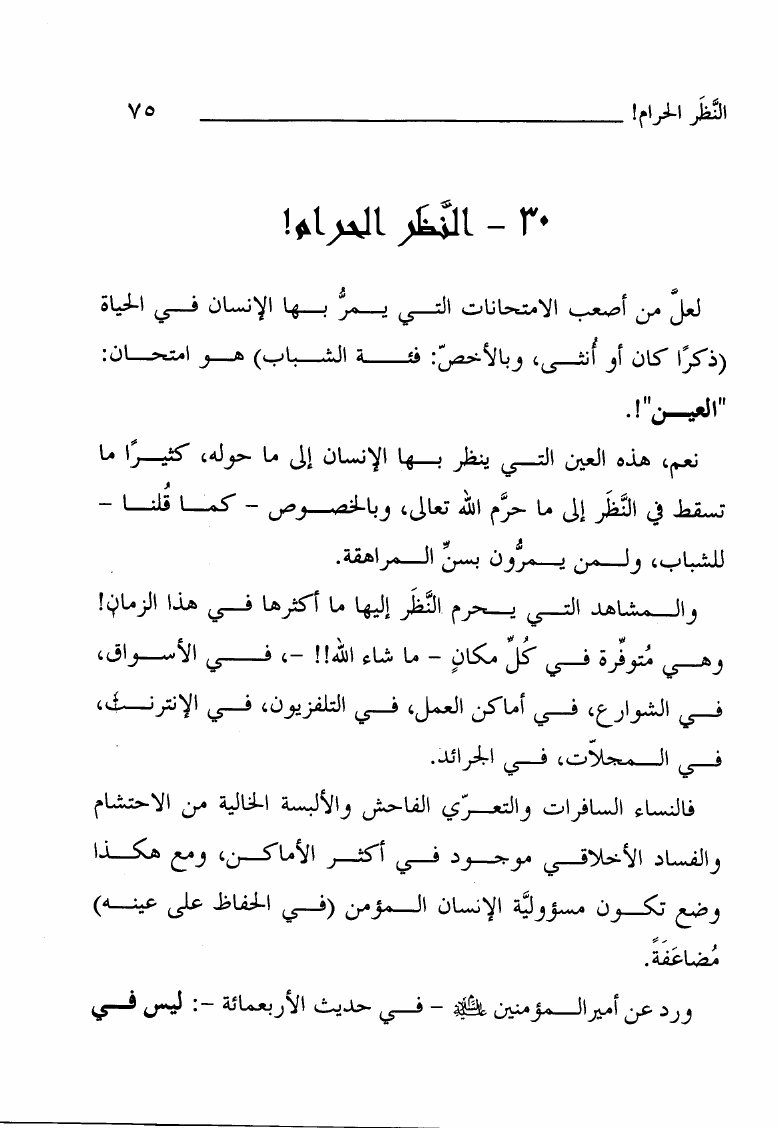 النَّظَر الحرام! ٧٥
٣٠ - النَّظَر الحرام!
لعلَّ من أصعب الامتحانات التي يمرُّ بها الإنسان في الحياة
(ذكرًا كان أو أُنثى، وبالأخصّ: فئة الشباب) هو امتحان:
"العين"!.
نعم، هذه العين التي ينظر بها الإنسان إلى ما حوله، كثيرًا ما
تسقط في النَّظَر إلى ما حرَّم الله تعالى، وبالخصوص - كما قُلنا -
للشباب، ولمن يمرُّون بسنِّ المراهقة.
والمشاهد التي يحرم النَّظَر إليها ما أكثرها في هذا الزمان!
وهي مُتوفِّرة في كُلِّ مكانٍ - ما شاء الله!! -، في الأسواق،
في الشوارع، في أماكن العمل، في التلفزيون، في الإنترنت،
في المحلاّت، في الجرائد.
فالنساء السافرات والتعرّي الفاحش والألبسة الخالية من الاحتشام
والفساد الأخلاقي موجود في أكثر الأماكن، ومع هكذا
وضع تكون مسؤوليَّة الإنسان المؤمن (في الحفاظ على عينه)
مُضاعَفَةً.
ورد عن أمير المؤمنين عليه السلام - في حديث الأربعمائة -: ليس في